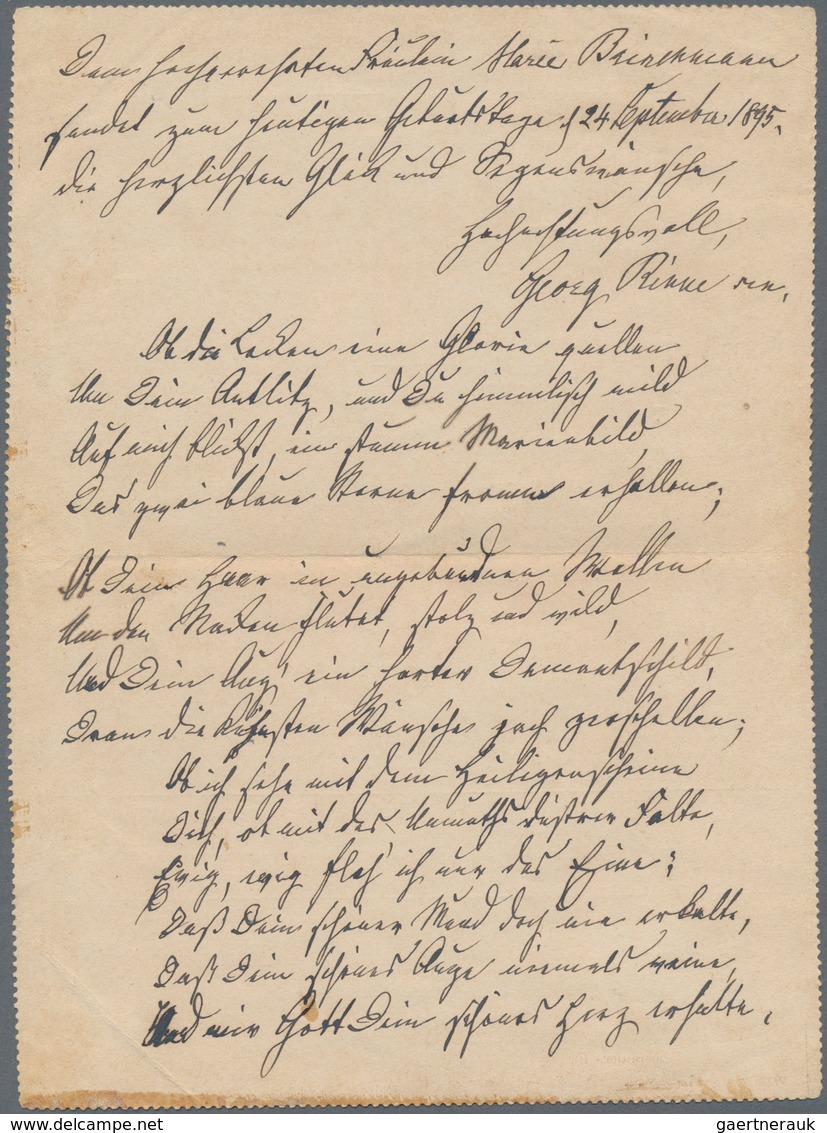 Dem hochverehrten Fräulein Marie Brinckmann
sendet zum heutigen Geburtstage, d 24 September 1895,
die herzlichsten Glük und Segenswünsche,
Hochachtungsvoll,
Georg Rinne sen.
Ob die Locken eine Glorie quellen
Um Dein Antlitz, und Du himmlisch mild
Auf mich blickst, ein stumm Marienbild,
Das zwei blaue Sterne fromm erhellen;
Ob Dein Haar in ungebundnen Wellen
Um den Nacken flutet, stolz und wild,
Und Dein Aug' ein harter Demantschild,
Dran die kühnsten Wünsche jach zerschellen;
Ob ich sehe mit dem Heiligenscheine
Dich, ob mit des Unmuths düstrer Falte,
Ewig, ewig fleh' ich nur das Eine:
Daß Dein schöner Mund doch nie erkalte,
Daß Dein schönes Auge niemals weine,
Und mir Gott Dein schönes Herz erhalte.
gaertnerauk